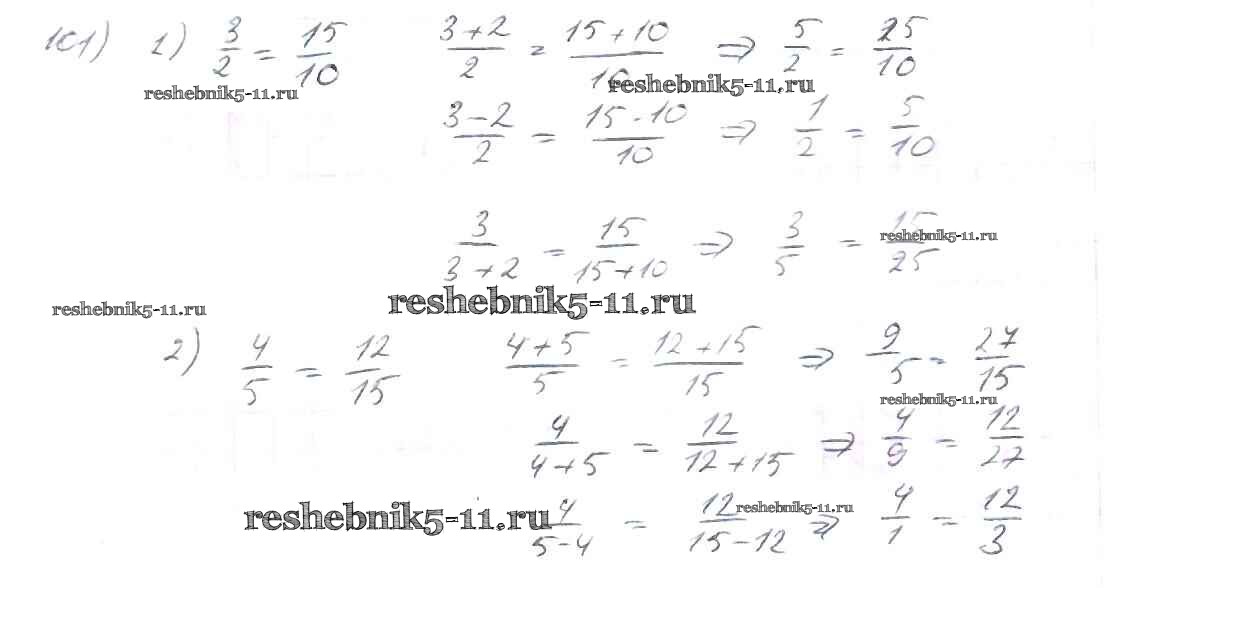 101) 1) 3/2 = 15/10 (3+2)/2 = (15+10)/10 ⇒ 5/2 = 25/10
reshebnik5-11.ru reshebnik5-11.ru
(3-2)/2 = (15-10)/10 ⇒ 1/2 = 5/10
3/(3+2) = 15/(15+10) ⇒ 3/5 = 15/25
reshebnik5-11.ru
reshebnik5-11.ru reshebnik5-11.ru
2) 4/5 = 12/15 (4+5)/5 = (12+15)/15 ⇒ 9/5 = 27/15
reshebnik5-11.ru
4/(4+5) = 12/(12+15) ⇒ 4/9 = 12/27
reshebnik5-11.ru 4/(5-4) = 12/(15-12) ⇒ 4/1 = 12/3
reshebnik5-11.ru